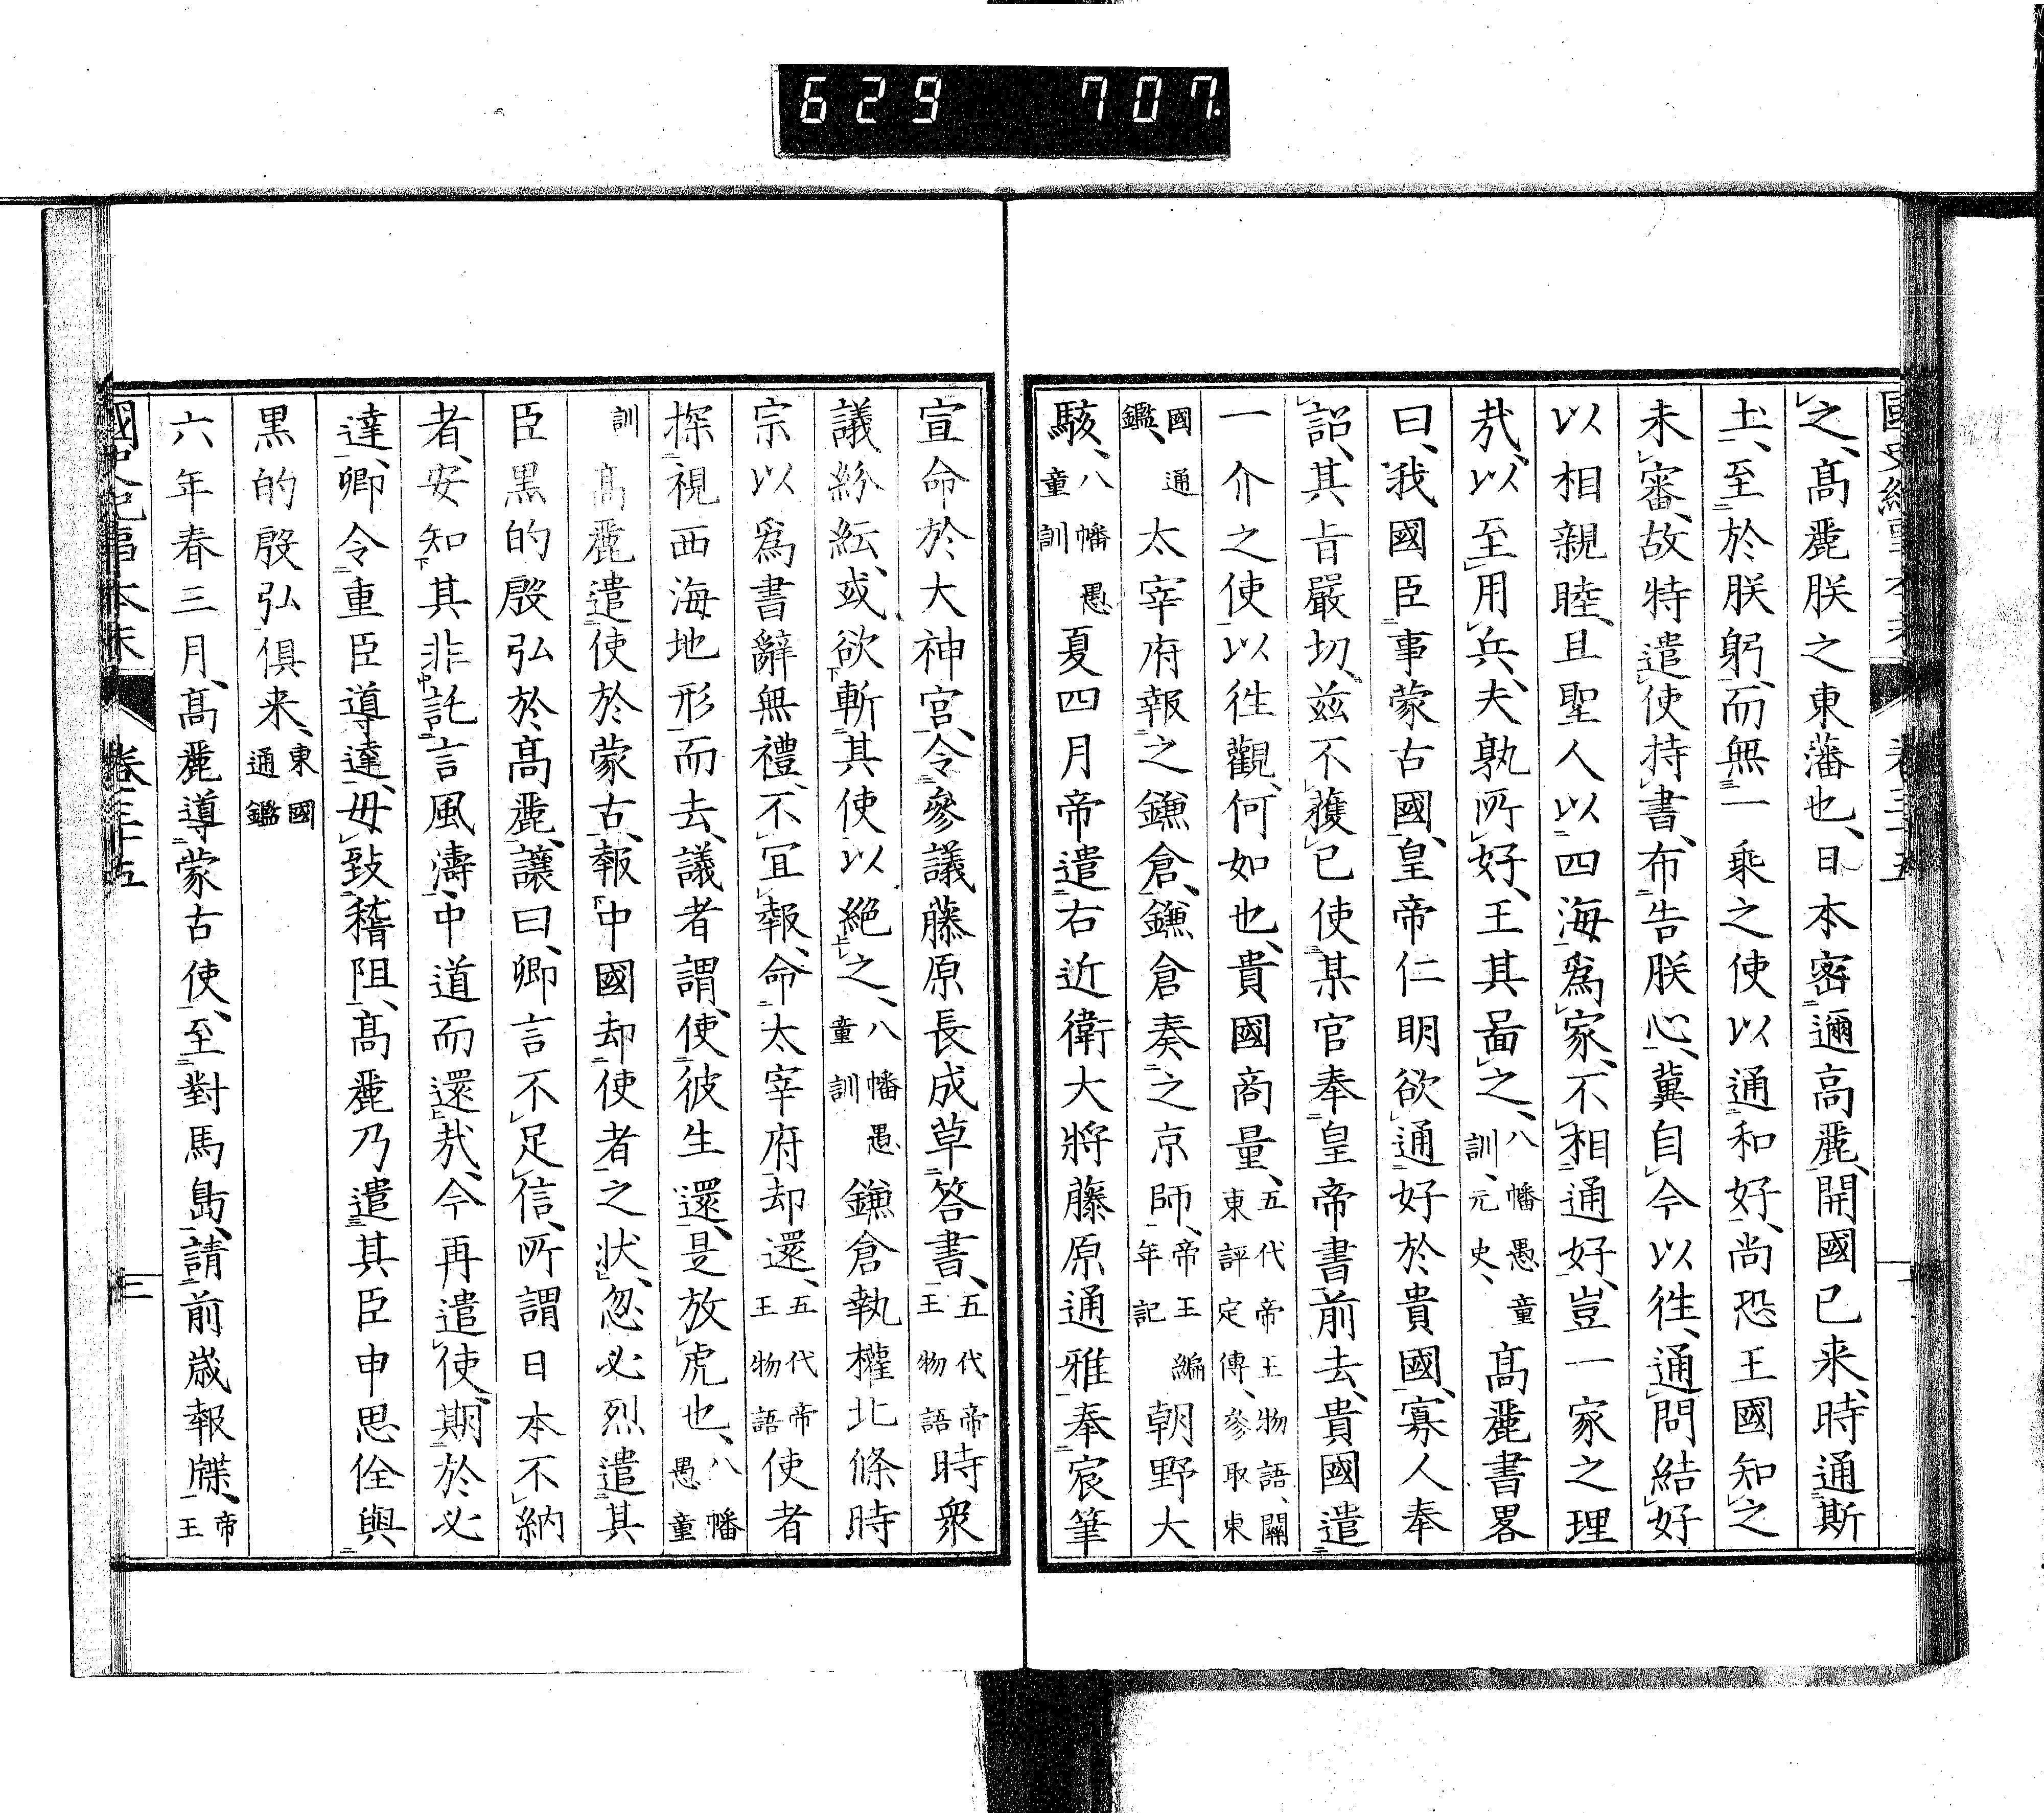 629 707.
之、高麗朕之東藩也、日本密邇高麗、開國已来、時通斯
土、至於朕躬、而無一乗之使以通和好、尚恐王國知之
未審、故特遣使持書、布告朕心、冀自今以徃、通問結好
以相親睦、且聖人以四海爲家、不相通好、豈一家之理
㢤、以至用兵、夫孰所好、王其啚之、八幡愚童訓、元史、高麗書畧
曰、我國臣事蒙古國、皇帝仁明欲通好於貴國、寡人奉
詔、其旨嚴切、兹不獲已使某官奉皇帝書前去、貴國遣
一介之使以徃觀、何如也、貴國商量、五代帝王物語、關東評定傳、參取東
國通鑑、太宰府報之鎌倉、鎌倉奏之京師、帝王編年記朝野大
駭、八幡愚童訓夏四月帝遣右近衛大將藤原通雅奉宸筆
宣命於大神宮、令參議藤原長成草答書、五代帝王物語時衆
議紛紜、或欲斬其使以絶之、八幡愚童訓鎌倉執權北條時
宗以爲書辭無禮、不宜報、命太宰府却還、五代帝王物語使者
探視西海地形而去、議者謂、使彼生還、是放虎也、八幡愚童
訓高麗遣使於蒙古、報中國却使者之状、忽必烈遣其
臣黒的殷弘於高麗、讓曰、卿言不足信、所謂日本不納
者、安知其非託言風濤、中道而還㢤、今再遣使、期於必
達、卿令重臣導達、毋致稽阻、高麗乃遣其臣申思佺與
黒的殷弘俱来、東國通鑑
六年春三月、高麗導蒙古使、至對馬島、請前歳報牒、帝王
國史紀事本末
卷三十五
三